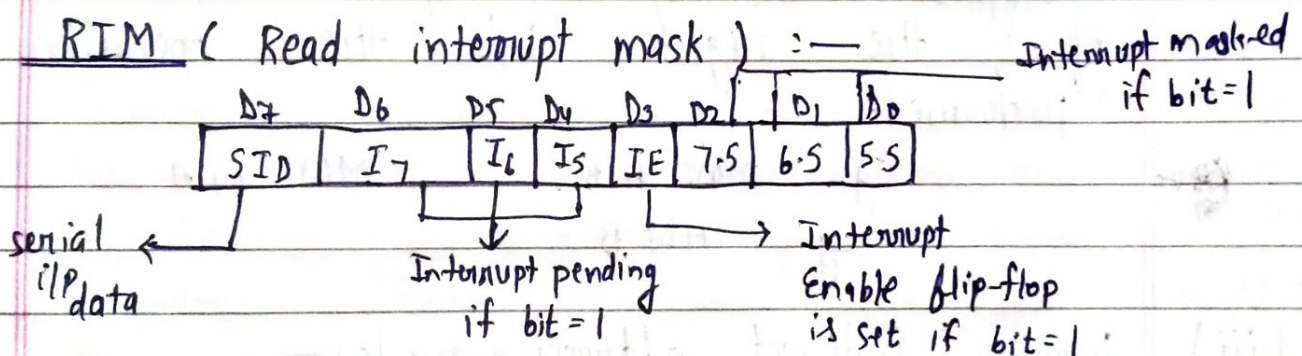 RIM ( Read interrupt mask ) :—
Interrupt masked
if bit=1
D7 D6 D5 D4 D3 D2 D1 D0
SID I7 I6 I5 IE 7.5 6.5 5.5
serial
i/p
data
Interrupt pending
if bit = 1
Interrupt
Enable flip-flop
is set if bit=1.